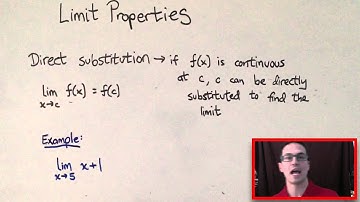 Limit Properties
Direct substitution → if f(x) is continuous
at c, c can be directly
substituted to find the
limit
lim f(x) = f(c)
x→c
Example:
lim x+1
x→5